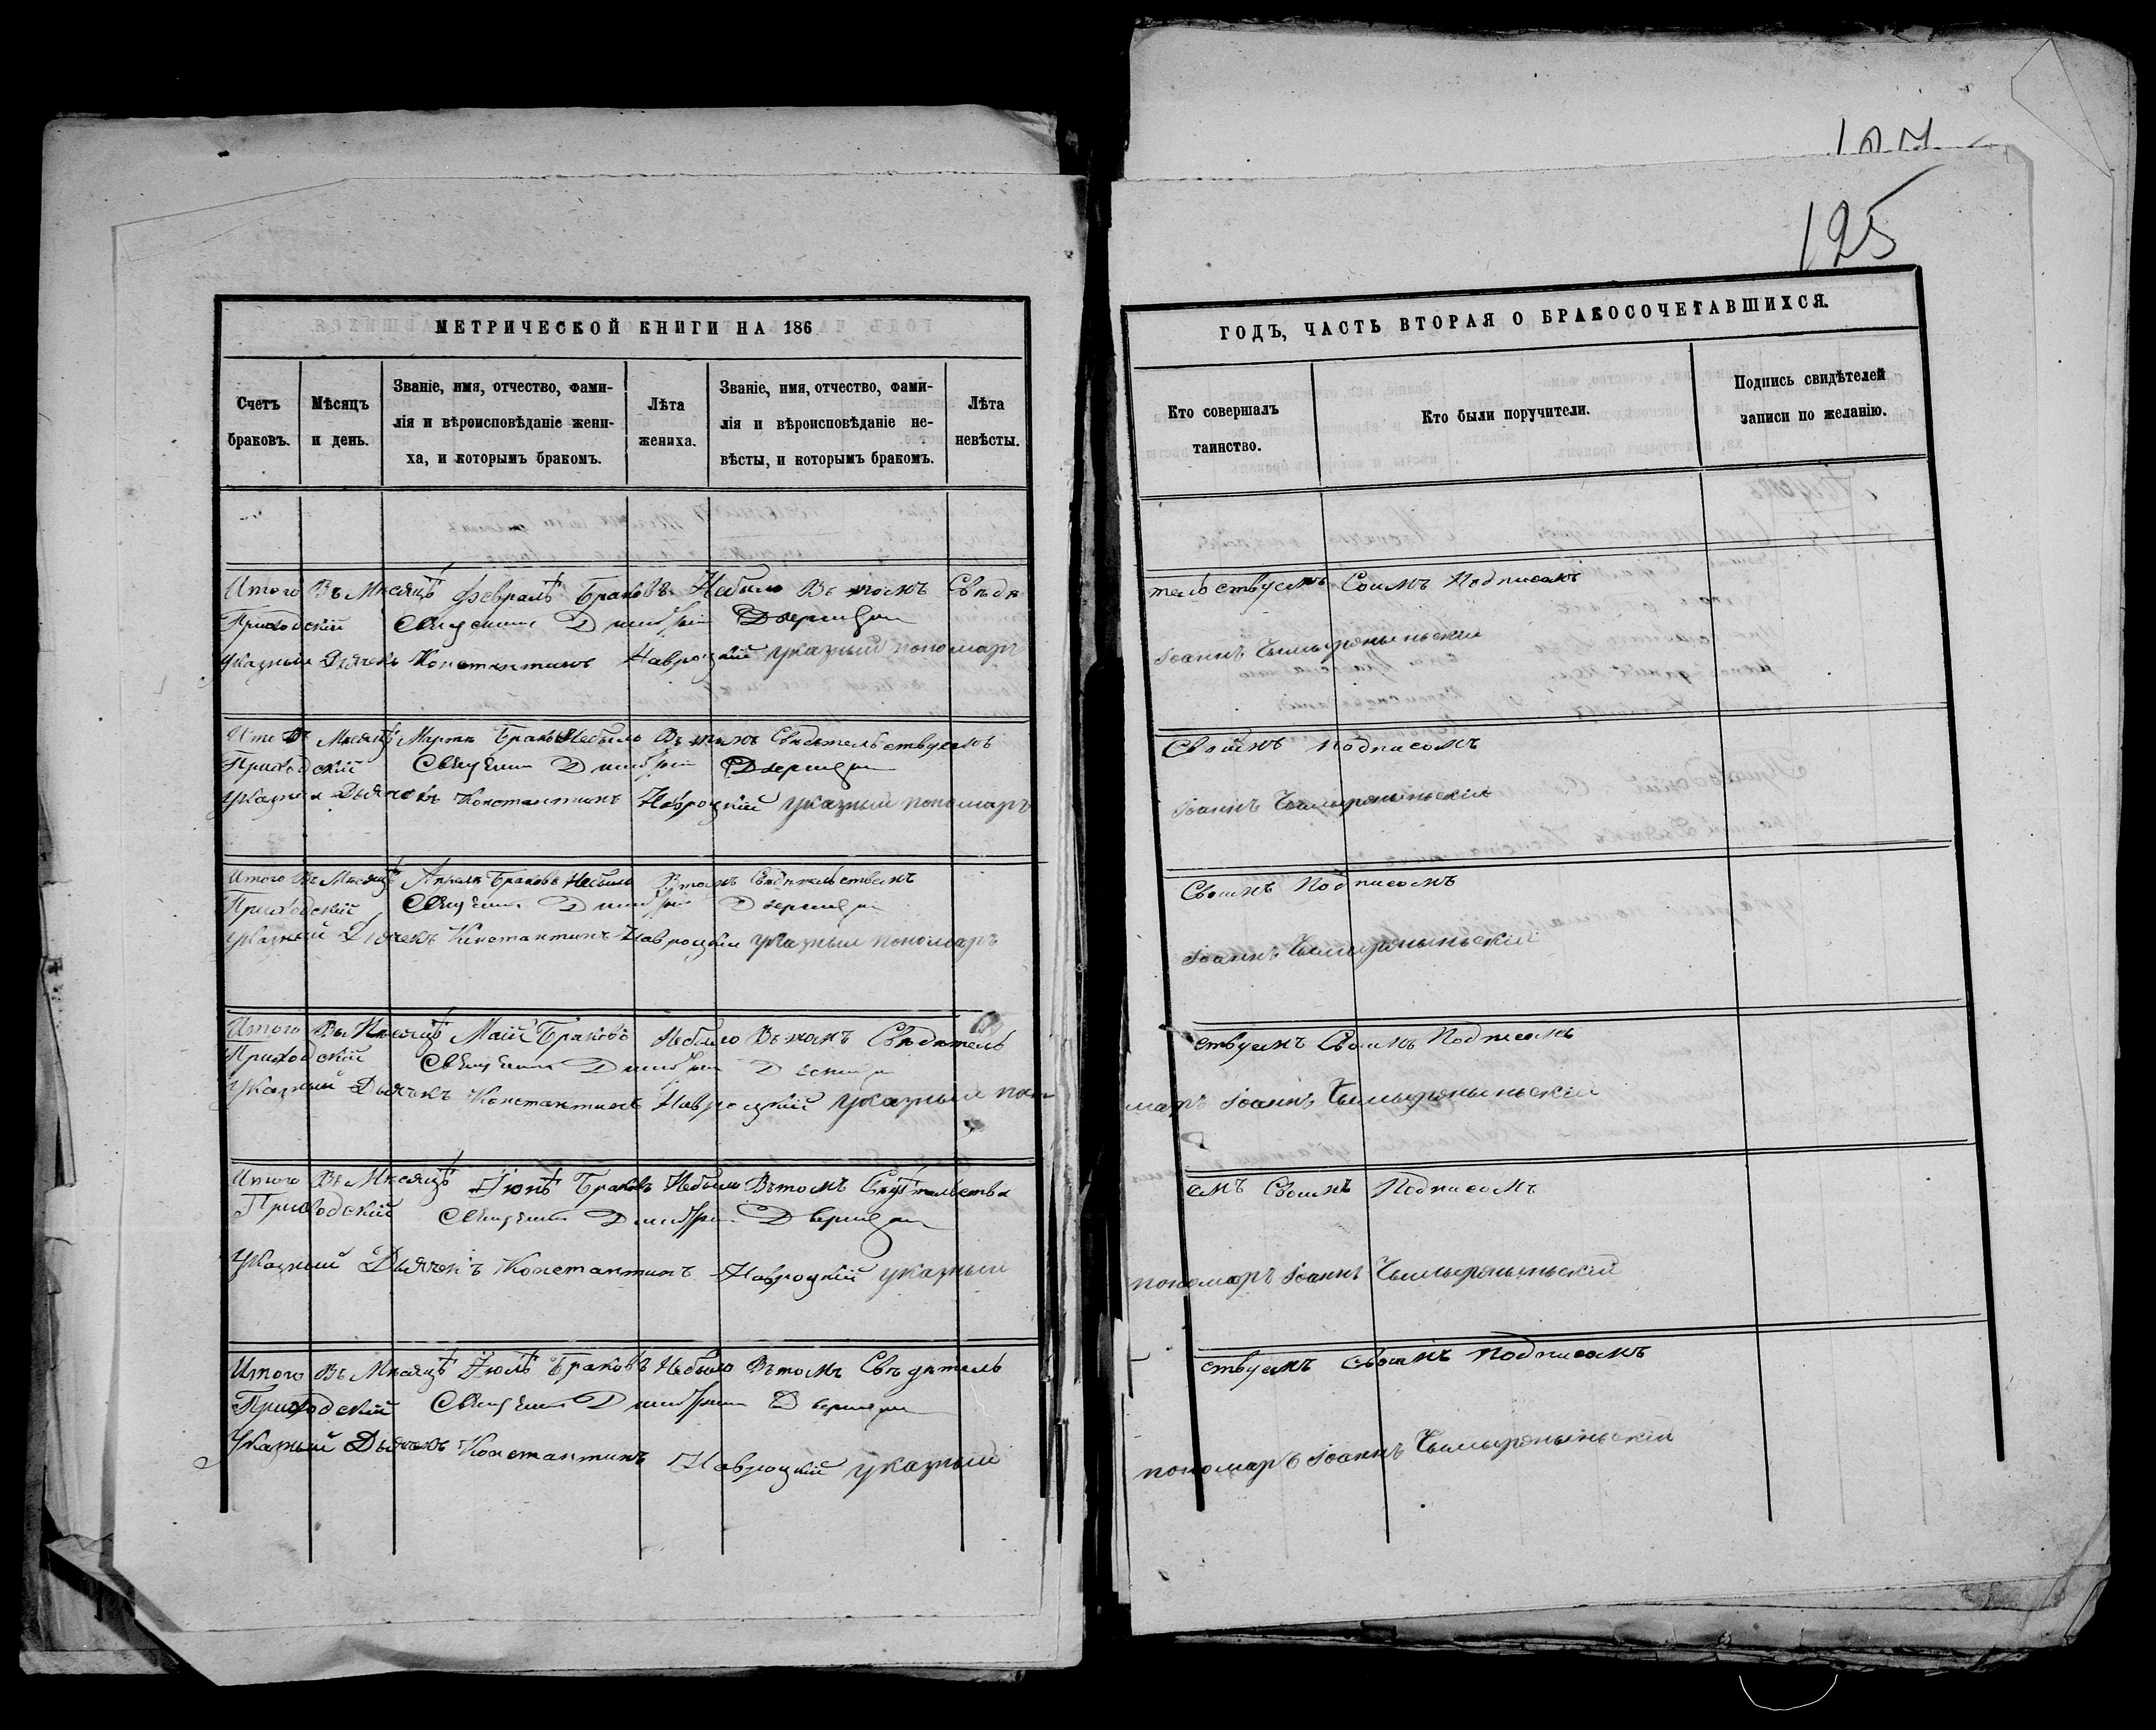 125
МЕТРИЧЕСКОЙ КНИГИ НА 186
Счетъ браковъ.
Мѣсяцъ и день.
Званіе, имя, отчество, фами-
лія и вѣроисповѣданіе жени-
ха, и которымъ бракомъ.
Лѣта жениха.
Званіе, имя, отчество, фами-
лія и вѣроисповѣданіе не-
вѣсты, и которымъ бракомъ.
Лѣта невѣсты.
Итого Въ Мисяцѣ Февралѣ Браковъ Небыло Въ томъ Свѣдѣ
Приходскій Священик Димитрій
Указный Дьячекъ Константинъ Навроцкій указный пономаръ
Итого Въ Мисяцѣ Марти Браковъ Небыло Въ томъ Свѣдѣтельствуемъ
Приходскій Священик Димитрій
Указный Дьячекъ Константинъ Навроцкій указный пономаръ
Итого Въ Мисяцѣ Апрели Браковъ Небыло Втомъ
Приходскій Священик Димитрій
Указный Дьячекъ Константинъ Навроцкій указный пономаръ
Итого Въ Мисяцѣ Маій Браковъ Небыло Въ томъ Свѣдѣтель
Приходскій Священик Димитрій
Указный Дьячекъ Константинъ Навроцкій указный поно
Итого Въ Мисяцѣ Іюнѣ Браковъ Небыло Въ томъ
Приходскій Священик Димитрій
Указный Дьячекъ Константинъ Навроцкій указный
Итого Въ Мисяцѣ Іюлѣ Браковъ Небыло Въ томъ Свѣдѣтель
Приходскій Священик Димитрій
Указный Дьячекъ Константинъ Навроцкій указный
ГОДЪ, ЧАСТЬ ВТОРАЯ О БРАКОСОЧЕТАВШИХСЯ.
Кто совершалъ таинство.
Кто были поручители.
Подпись свидѣтелей
записи по желанію.
тельствуемъ Соимъ Подписомъ
Іоаннъ
Своимъ Подписомъ
Іоаннъ
Своимъ Подписомъ
Іоаннъ
ствуемъ Своимъ Подписомъ
маръ Іоаннъ
емъ Своимъ Подписомъ
пономаръ Іоаннъ
ствуемъ Своимъ Подписомъ
пономаръ Іоаннъ